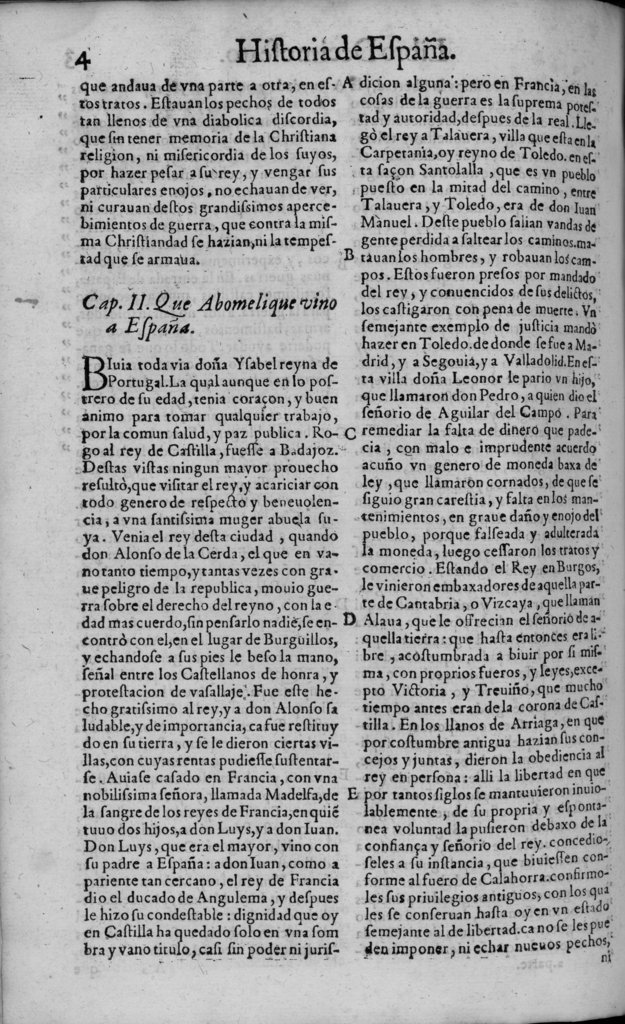 4
Historia de España.
que andaua de vna parte a otra, en es-
tos tratos. Estauan los pechos de todos
tan llenos de vna diabolica discordia,
que sin tener memoria de la Christiana
religion, ni misericordia de los suyos,
por hazer pesar a su rey, y vengar sus
particulares enojos, no echauan de ver,
ni curauan destos grandissimos aperce-
bimientos de guerra, que contra la mis-
ma Christiandad se hazian, ni la tempes-
tad que se armaua.
Cap. II. Que Abomelique vino
a España.
BIuia toda via doña Ysabel reyna de
Portugal. La qual aunque en lo pos-
trero de su edad, tenia coraçon, y buen
animo para tomar qualquier trabajo,
por la comun salud, y paz publica. Ro-
go al rey de Castilla, fuesse a Badajoz.
Destas vistas ningun mayor prouecho
resultò, que visitar el rey, y acariciar con
todo genero de respecto y beneuolen-
cia, a vna santissima muger abuela su-
ya. Venia el rey desta ciudad, quando
don Alonso de la Cerda, el que en va-
no tanto tiempo, y tantas vezes con gra-
ue peligro de la republica, mouio gue-
rra sobre el derecho del reyno, con la e-
dad mas cuerdo, sin pensarlo nadie, se en-
contrò con el, en el lugar de Burguillos,
y echandose a sus pies le beso la mano,
señal entre los Castellanos de honra, y
protestacion de vasallaje. Fue este he-
cho gratissimo al rey, y a don Alonso sa
ludable, y de importancia, ca fue restituy
do en su tierra, y se le dieron ciertas vi-
llas, con cuyas rentas pudiesse sustentar-
se. Auiase casado en Francia, con vna
nobilissima señora, llamada Madelfa, de
la sangre de los reyes de Francia, en quiē
tuuo dos hijos, a don Luys, y a don Iuan.
Don Luys, que era el mayor, vino con
su padre a España: a don Iuan, como a
pariente tan cercano, el rey de Francia
dio el ducado de Angulema, y despues
le hizo su condestable: dignidad que oy
en Castilla ha quedado solo en vna som
bra y vano titulo, casi sin poder ni juris-
A dicion alguna: pero en Francia, en las
cosas de la guerra es la suprema potes-
tad y autoridad, despues de la real. Lle-
gò el rey a Talauera, villa que esta en la
Carpetania, oy reyno de Toledo. en es-
ta saçon Santolalla, que es vn pueblo
puesto en la mitad del camino, entre
Talauera, y Toledo, era de don Iuan
Manuel. Deste pueblo salian vandas de
gente perdida a saltear los caminos. ma-
B tauan los hombres, y robauan los cam-
pos. Estos fueron presos por mandado
del rey, y conuencidos de sus delictos,
los castigaron con pena de muerte. Vn
semejante exemplo de justicia mandò
hazer en Toledo. de donde se fue a Ma-
drid, y a Segouia, y a Valladolid. En es-
ta villa doña Leonor le pario vn hijo,
que llamaron don Pedro, a quien dio el
señorio de Aguilar del Campo. Para
C remediar la falta de dinero que pade-
cia, con malo e imprudente acuerdo
acuño vn genero de moneda baxa de
ley, que llamaron cornados, de que se
siguio gran carestia, y falta en los man-
tenimientos, en graue daño y enojo del
pueblo, porque falseada y adulterada
la moneda, luego cessaron los tratos y
comercio. Estando el Rey en Burgos,
le vinieron embaxadores de aquella par-
te de Cantabria, o Vizcaya, que llaman
D Alaua, que le offrecian el señorio de a-
quella tierra: que hasta entonces era li-
bre, acostumbrada a biuir por si mis-
ma, con proprios fueros, y leyes, exce-
pto Victoria, y Treuiño, que mucho
tiempo antes eran de la corona de Cas-
tilla. En los llanos de Arriaga, en que
por costumbre antigua hazian sus con-
cejos y juntas, dieron la obediencia al
rey en persona: alli la libertad en que
E por tantos siglos se mantuuieron inuio-
lablemente, de su propria y esponta-
nea voluntad la pusieron debaxo de la
confiança y señorio del rey. concedio-
seles a su instancia, que biuiessen con-
forme al fuero de Calahorra. confirmo-
les sus priuilegios antiguos, con los qua
les se conseruan hasta oy en vn estado
semejante al de libertad. ca no se les pue
den imponer, ni echar nueuos pechos,
ni